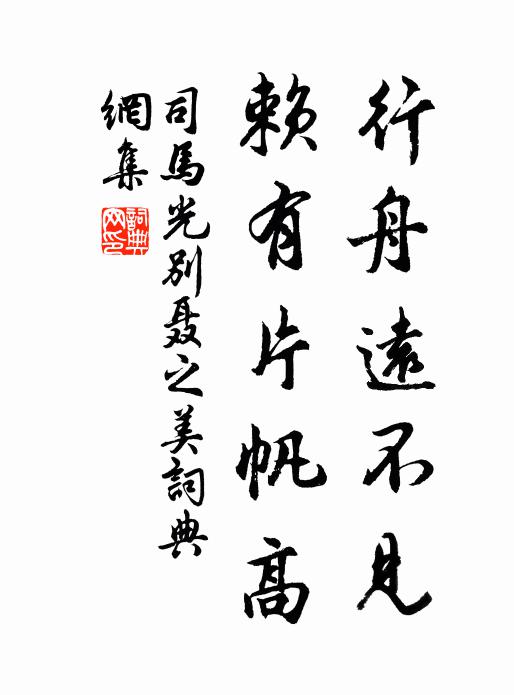 行舟遠不見
賴有片帆高
司馬光別聶之美詞典
網集
詞典
网印